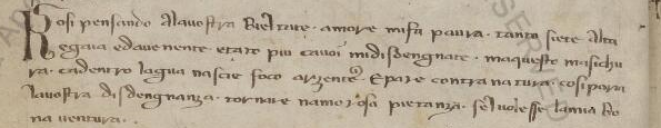 Kosi pensando alavostra Bieltate · amore mifa paura · tanto siete Alta
Egaia edavenente etato piu cavoi midisdengnate · maquesto masichu
ra · cadentro lagua nascie foco arzente · Epare contra natura · cosi pora
lavostra disdengnanza · tornare namorosa pietanza · selvolesse lamia Bo
na ventura ·